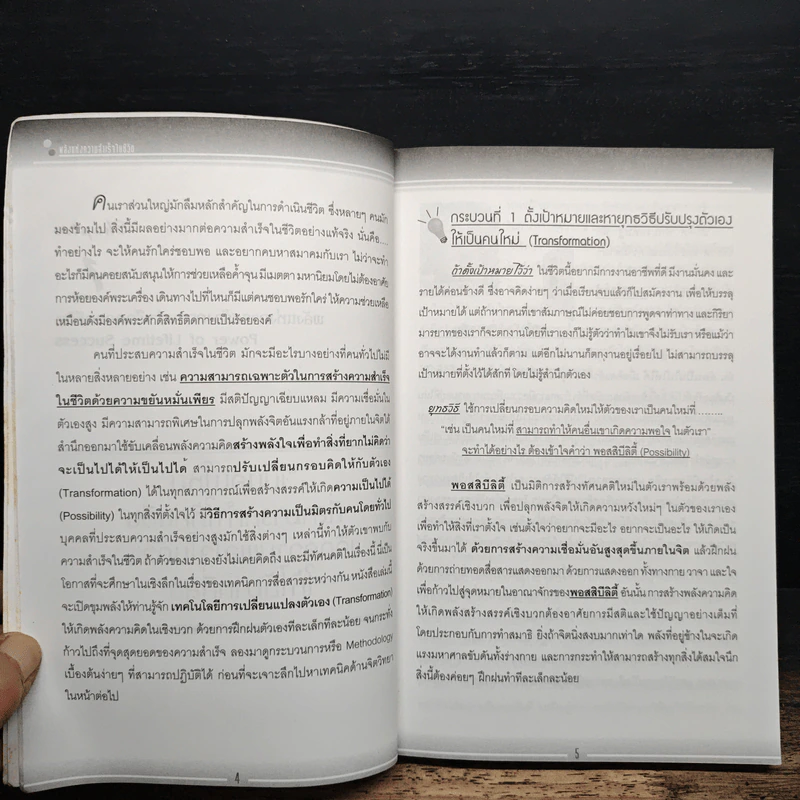 พลังแห่งความสำเร็จในชีวิต
คนเราส่วนใหญ่มักลืมหลักสำคัญในการดำเนินชีวิต ซึ่งหลายๆ คนมัก
มองข้ามไป สิ่งนี้มีผลอย่างมากต่อความสำเร็จในชีวิตอย่างแท้จริง นั่นคือ....
ทำอย่างไร จะให้คนรักใคร่ชอบพอ และอยากคบหาสมาคมกับเรา ไม่ว่าจะทำ
อะไรก็มีคนคอยสนับสนุนให้การช่วยเหลือค้ำจุน มีเมตตา มหานิยมโดยไม่ต้องอาศัย
การห้อยองค์พระเครื่อง เดินทางไปที่ไหนก็มีแต่คนชอบพอรักใคร่ ให้ความช่วยเหลือ
เหมือนดั่งมีองค์พระศักดิ์สิทธิ์ติดกายเป็นร้อยองค์
คนที่ประสบความสำเร็จในชีวิต มักจะมีอะไรบางอย่างที่คนทั่วไปไม่มี
ในหลายสิ่งหลายอย่าง เช่น ความสามารถเฉพาะตัวในการสร้างความสำเร็จ
ในชีวิตด้วยความขยันหมั่นเพียร มีสติปัญญาเฉียบแหลม มีความเชื่อมั่นใน
ตัวเองสูง มีความสามารถพิเศษในการปลุกพลังจิตอันแรงกล้าที่อยู่ภายในจิตใต้
สำนึกออกมาใช้ขับเคลื่อนพลังความคิดสร้างพลังใจเพื่อทำสิ่งที่ยากไม่คิดว่า
จะเป็นไปได้ให้เป็นไปได้ สามารถปรับเปลี่ยนกรอบคิดให้กับตัวเอง
(Transformation) ได้ในทุกสภาวการณ์เพื่อสร้างสรรค์ให้เกิดความเป็นไปได้
(Possibility) ในทุกสิ่งที่ตั้งใจไว้ มีวิธีการสร้างความเป็นมิตรกับคนโดยทั่วไป
บุคคลที่ประสบความสำเร็จอย่างสูงมักใช้สิ่งต่างๆ เหล่านี้ทำให้ตัวเขาพบกับ
ความสำเร็จในชีวิต ถ้าตัวของเราเองยังไม่เคยคิดถึง และมีทัศนคติในเรื่องนี้ นี่เป็น
โอกาสที่จะศึกษาในเชิงลึกในเรื่องของเทคนิคการสื่อสารระหว่างกัน หนังสือเล่มนี้
จะเปิดขุมพลังให้ท่านรู้จัก เทคโนโลยีการเปลี่ยนแปลงตัวเอง (Transformation)
ให้เกิดพลังความคิดในเชิงบวก ด้วยการฝึกฝนตัวเองทีละเล็กทีละน้อย จนกระทั่ง
ก้าวไปถึงที่จุดสุดยอดของความสำเร็จ ลองมาดูกระบวนการหรือ Methodology
เบื้องต้นง่ายๆ ที่สามารถปฏิบัติได้ ก่อนที่จะเจาะลึกไปหาเทคนิคด้านจิตวิทยา
ในหน้าต่อไป
4
กระบวนที่ 1 ตั้งเป้าหมายและหายุทธวิธีปรับปรุงตัวเอง
ให้เป็นคนใหม่ (Transformation)
ถ้าตั้งเป้าหมายไว้ว่า ในชีวิตนี้อยากมีการงานอาชีพที่ดี มีงานมั่นคง และ
รายได้ค่อนข้างดี ซึ่งอาจคิดง่ายๆ ว่าเมื่อเรียนจบแล้วก็ไปสมัครงาน เพื่อให้บรรลุ
เป้าหมายได้ แต่ถ้าหากคนที่เขาสัมภาษณ์ไม่ค่อยชอบการพูดจาท่าทาง และกิริยา
มารยาทของเราก็จะตกงานโดยที่เราเองก็ไม่รู้ตัวว่าทำไมเขาจึงไม่รับเรา หรือแม้ว่า
อาจจะได้งานทำแล้วก็ตาม แต่อีกไม่นานก็ตกงานอยู่เรื่อยไป ไม่สามารถบรรลุ
เป้าหมายที่ตั้งไว้ได้สักที โดยไม่รู้สำนึกตัวเอง
ยุทธวิธี ใช้การเปลี่ยนกรอบความคิดใหม่ให้ตัวของเราเป็นคนใหม่ที่........
"เช่น เป็นคนใหม่ที่ สามารถทำให้คนอื่นเขาเกิดความพอใจ ในตัวเรา"
จะทำได้อย่างไร ต้องเข้าใจคำว่า พอสสิบีลิตี้ (Possibility)
พอสสิบีลิตี้ เป็นมิติการทำให้ทัศนคติใหม่ในตัวเราพร้อมด้วยพลัง
สร้างสรรค์เชิงบวก เพื่อปลุกพลังจิตให้เกิดความหวังใหม่ๆ ในตัวของเราเอง
เพื่อทำให้สิ่งที่เราตั้งใจ เช่นตั้งใจว่าอยากจะมีอะไร อยากจะเป็นอะไร ให้เกิดเป็น
จริงขึ้นมาได้ ด้วยการสร้างความเชื่อมั่นอันสูงสุดขึ้นภายในจิต แล้วฝึกฝน
ด้วยการถ่ายทอดสื่อสารแสดงออกมา ด้วยการแสดงออก ทั้งทางกาย วาจา และใจ
เพื่อก้าวไปสู่จุดหมายในอาณาจักรของพอสสิบีลิตี้ อันนั้น การสร้างพลังความคิด
ให้เกิดพลังสร้างสรรค์เชิงบวกต้องอาศัยการมีสติและใช้ปัญญาอย่างเต็มที่
โดยประกอบกับการทำสมาธิ ยิ่งถ้าจิตนิ่งสงบมากเท่าใด พลังที่อยู่ข้างในจะเกิด
แรงมหาศาลขับดันทั้งร่างกาย และการกระทำให้สามารถสร้างทุกสิ่งได้สมใจนึก
สิ่งนี้ต้องค่อยๆ ฝึกฝนทำทีละเล็กละน้อย
5